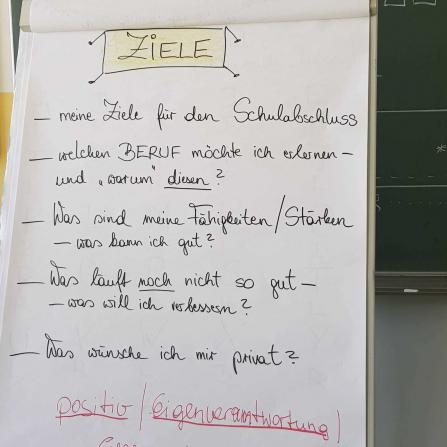 ZIELE
— meine Ziele für den Schulabschluss
— welchen BERUF möchte ich erlernen –
und „warum" diesen?
— Was sind meine Fähigkeiten/Stärken
– was kann ich gut?
— Was läuft noch nicht so gut –
– was will ich verbessern?
— Was wünsche ich mir privat?
positiv / Eigenverantwortung /